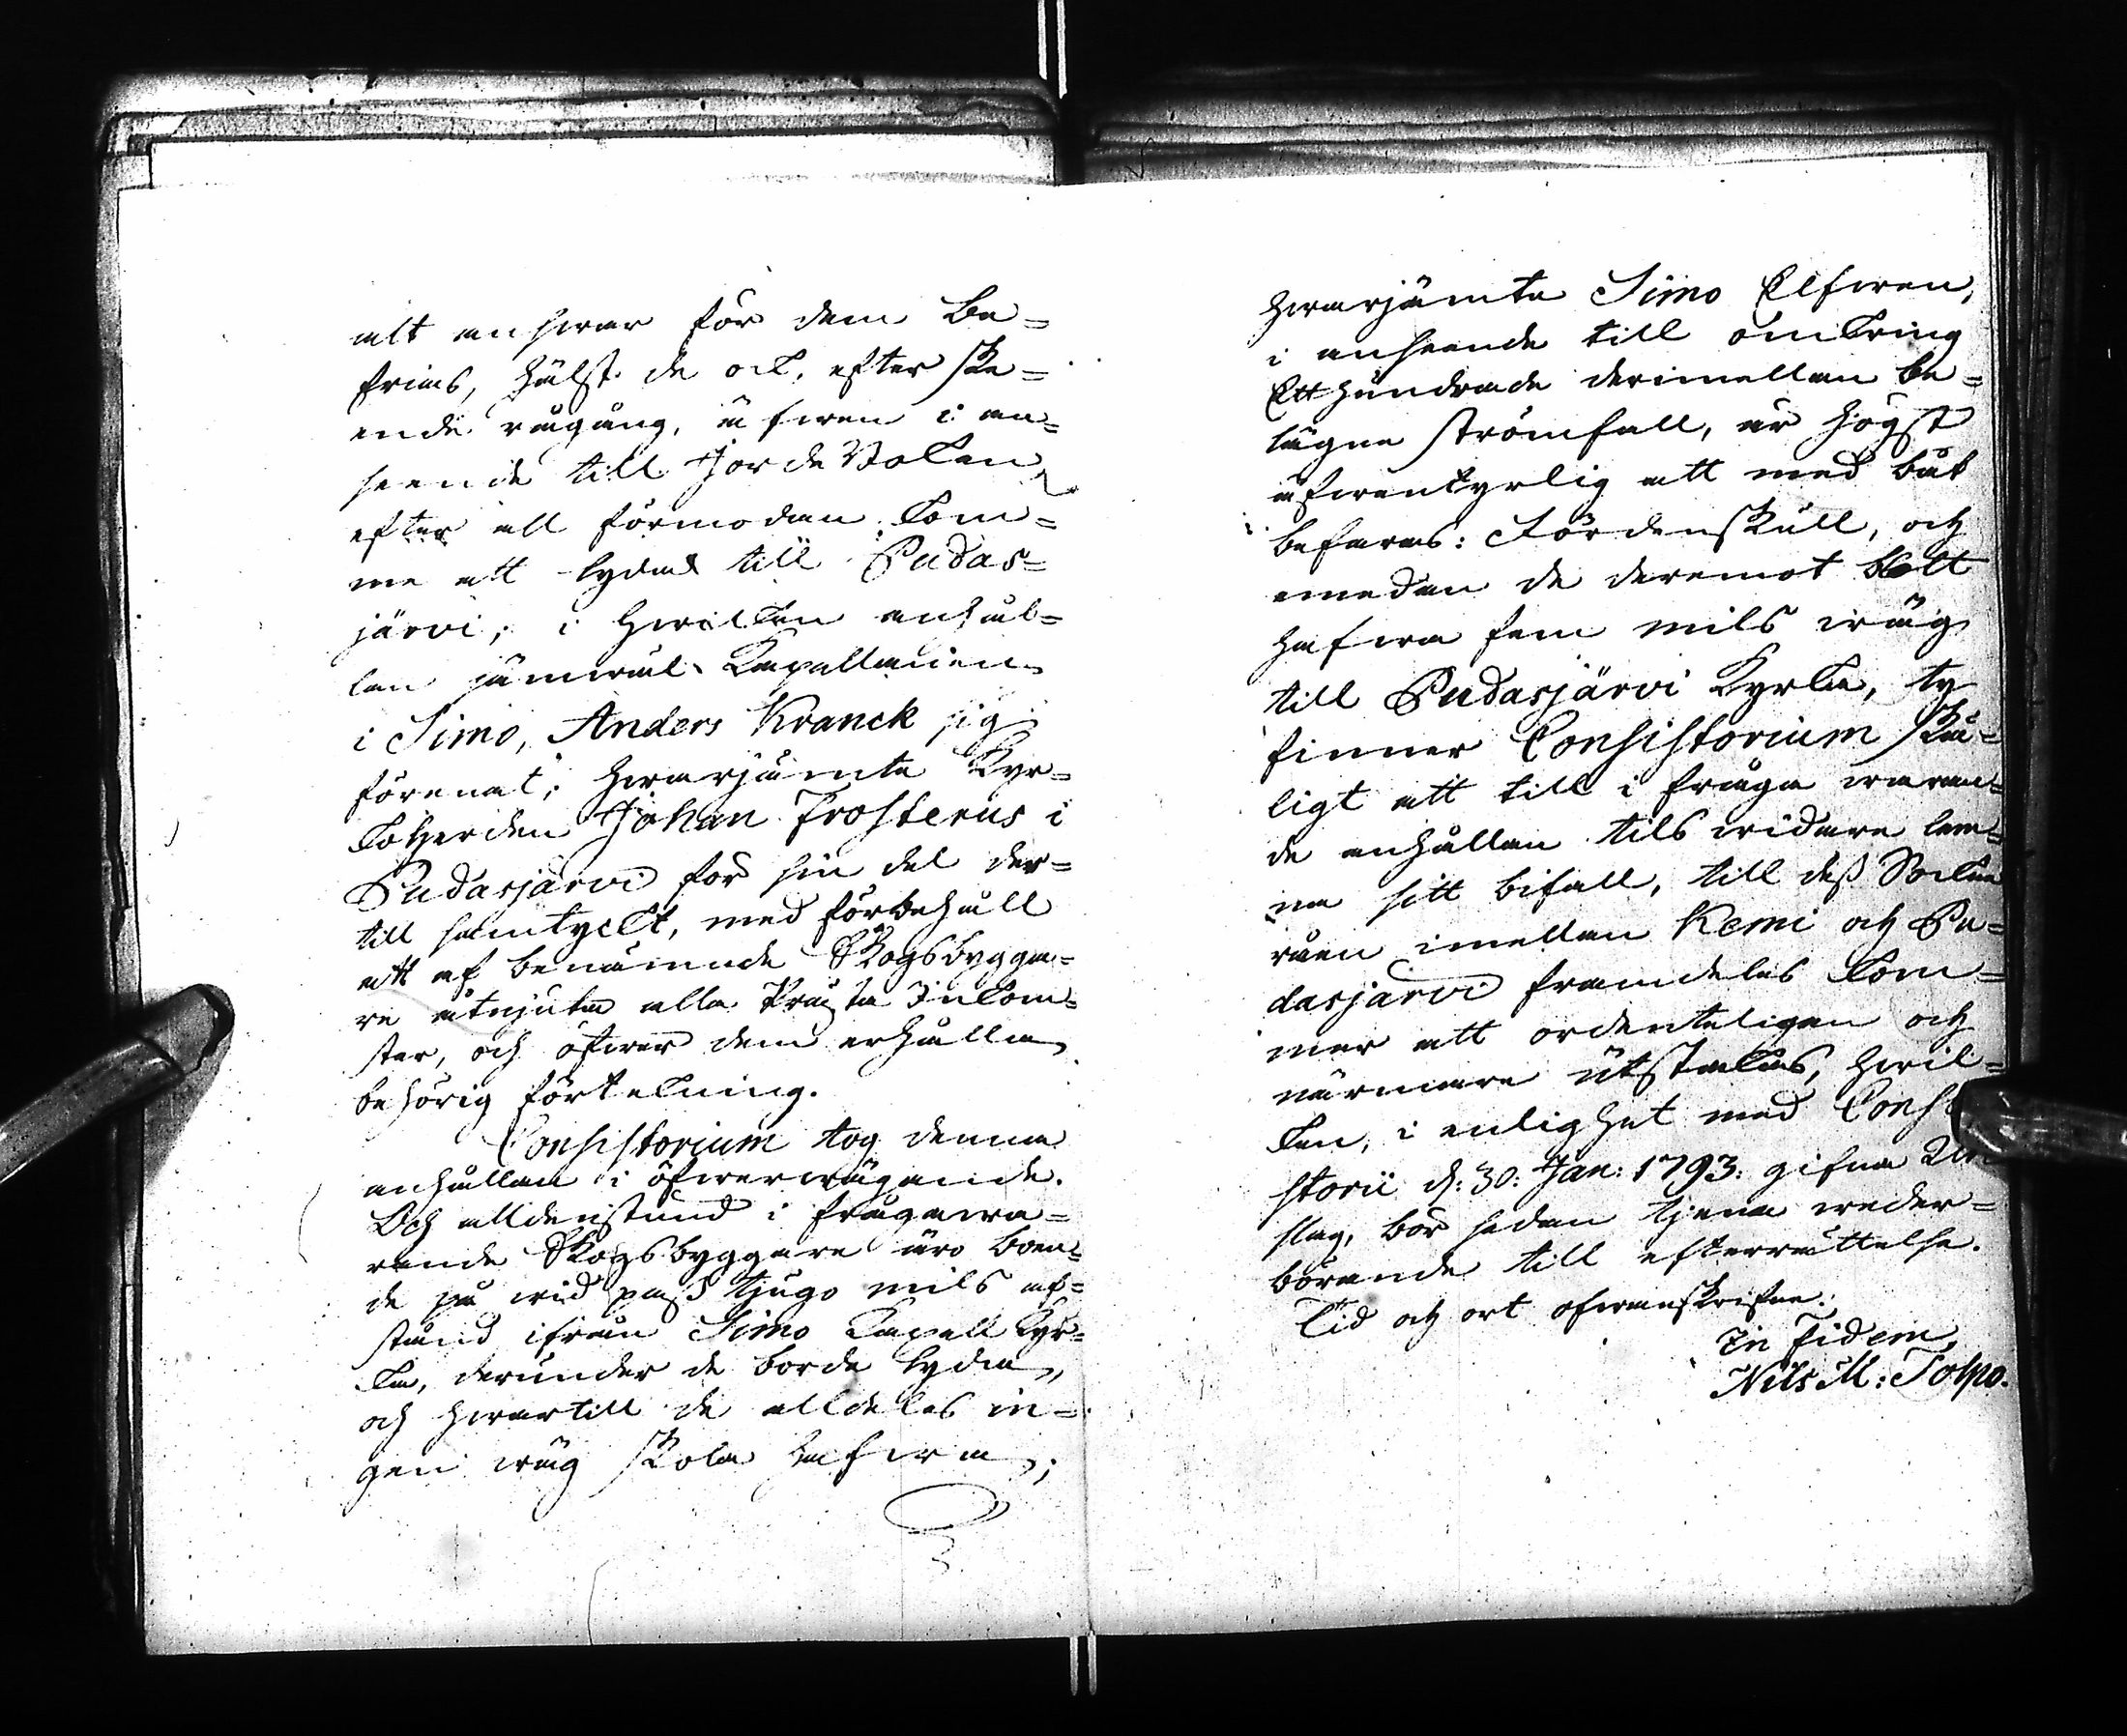 alt answar för dem be=
frias, hälst de ock, efter ske=
ende rågång, äfwen i an=
seende till Jorde Boken
efter all förmodan kom=
me att lyda till Pudas=
järvi; i hwilken anhål=
lan jämwäl Capellanen
i Simo, Anders Kranck sig
förenat; hwarjämte Kyr=
koherden Johan Frosterus i
Pudasjärvi för sin del der=
till samtyckt, med förbehåll
att af benämnde Skogsbygga=
re åtnjuta alla Prästa Inkom=
ster, och öfwer dem erhålla
behörig förtekning.
Consistorium tog denna
anhållan i öfwerwägande.
Och alldenstund i frågawa=
rande Skogsbyggare äro boen=
de på wid pass tjugo mils af=
stånd ifrån Simo Capell Kyr=
ka, derunder de borde lyda,
och hwartill de alldeles in=
gen wäg skola hafwa;
hwarjämte Simo Elfwen,
i anseende till omkring
Ett hundrade derimellan be=
lägne strömfall, är högst
äfwentyrlig att med båt
befaras: Fördenskull, och
emedan de deremot blott
hafwa fem mils wäg
till Pudasjärvi Kyrka, ty
finner Consistorium skä=
ligt att till i fråga waran=
de anhållan tils widare lem=
na sitt bifall, till dess Sockne
råen imellan Kemi och Pu=
dasjärvi framdeles kom=
mer att ordenteligen och
närmare utstakas, hwil=
ken, i enlighet med Consi
storii d: 30: Jan: 1793: gifna Ut
slag, bör sedan tjena weder=
börande till efterrättelse.
Tid och ort ofwanskrifne.
In fidem,
Nils M: Tolpo.